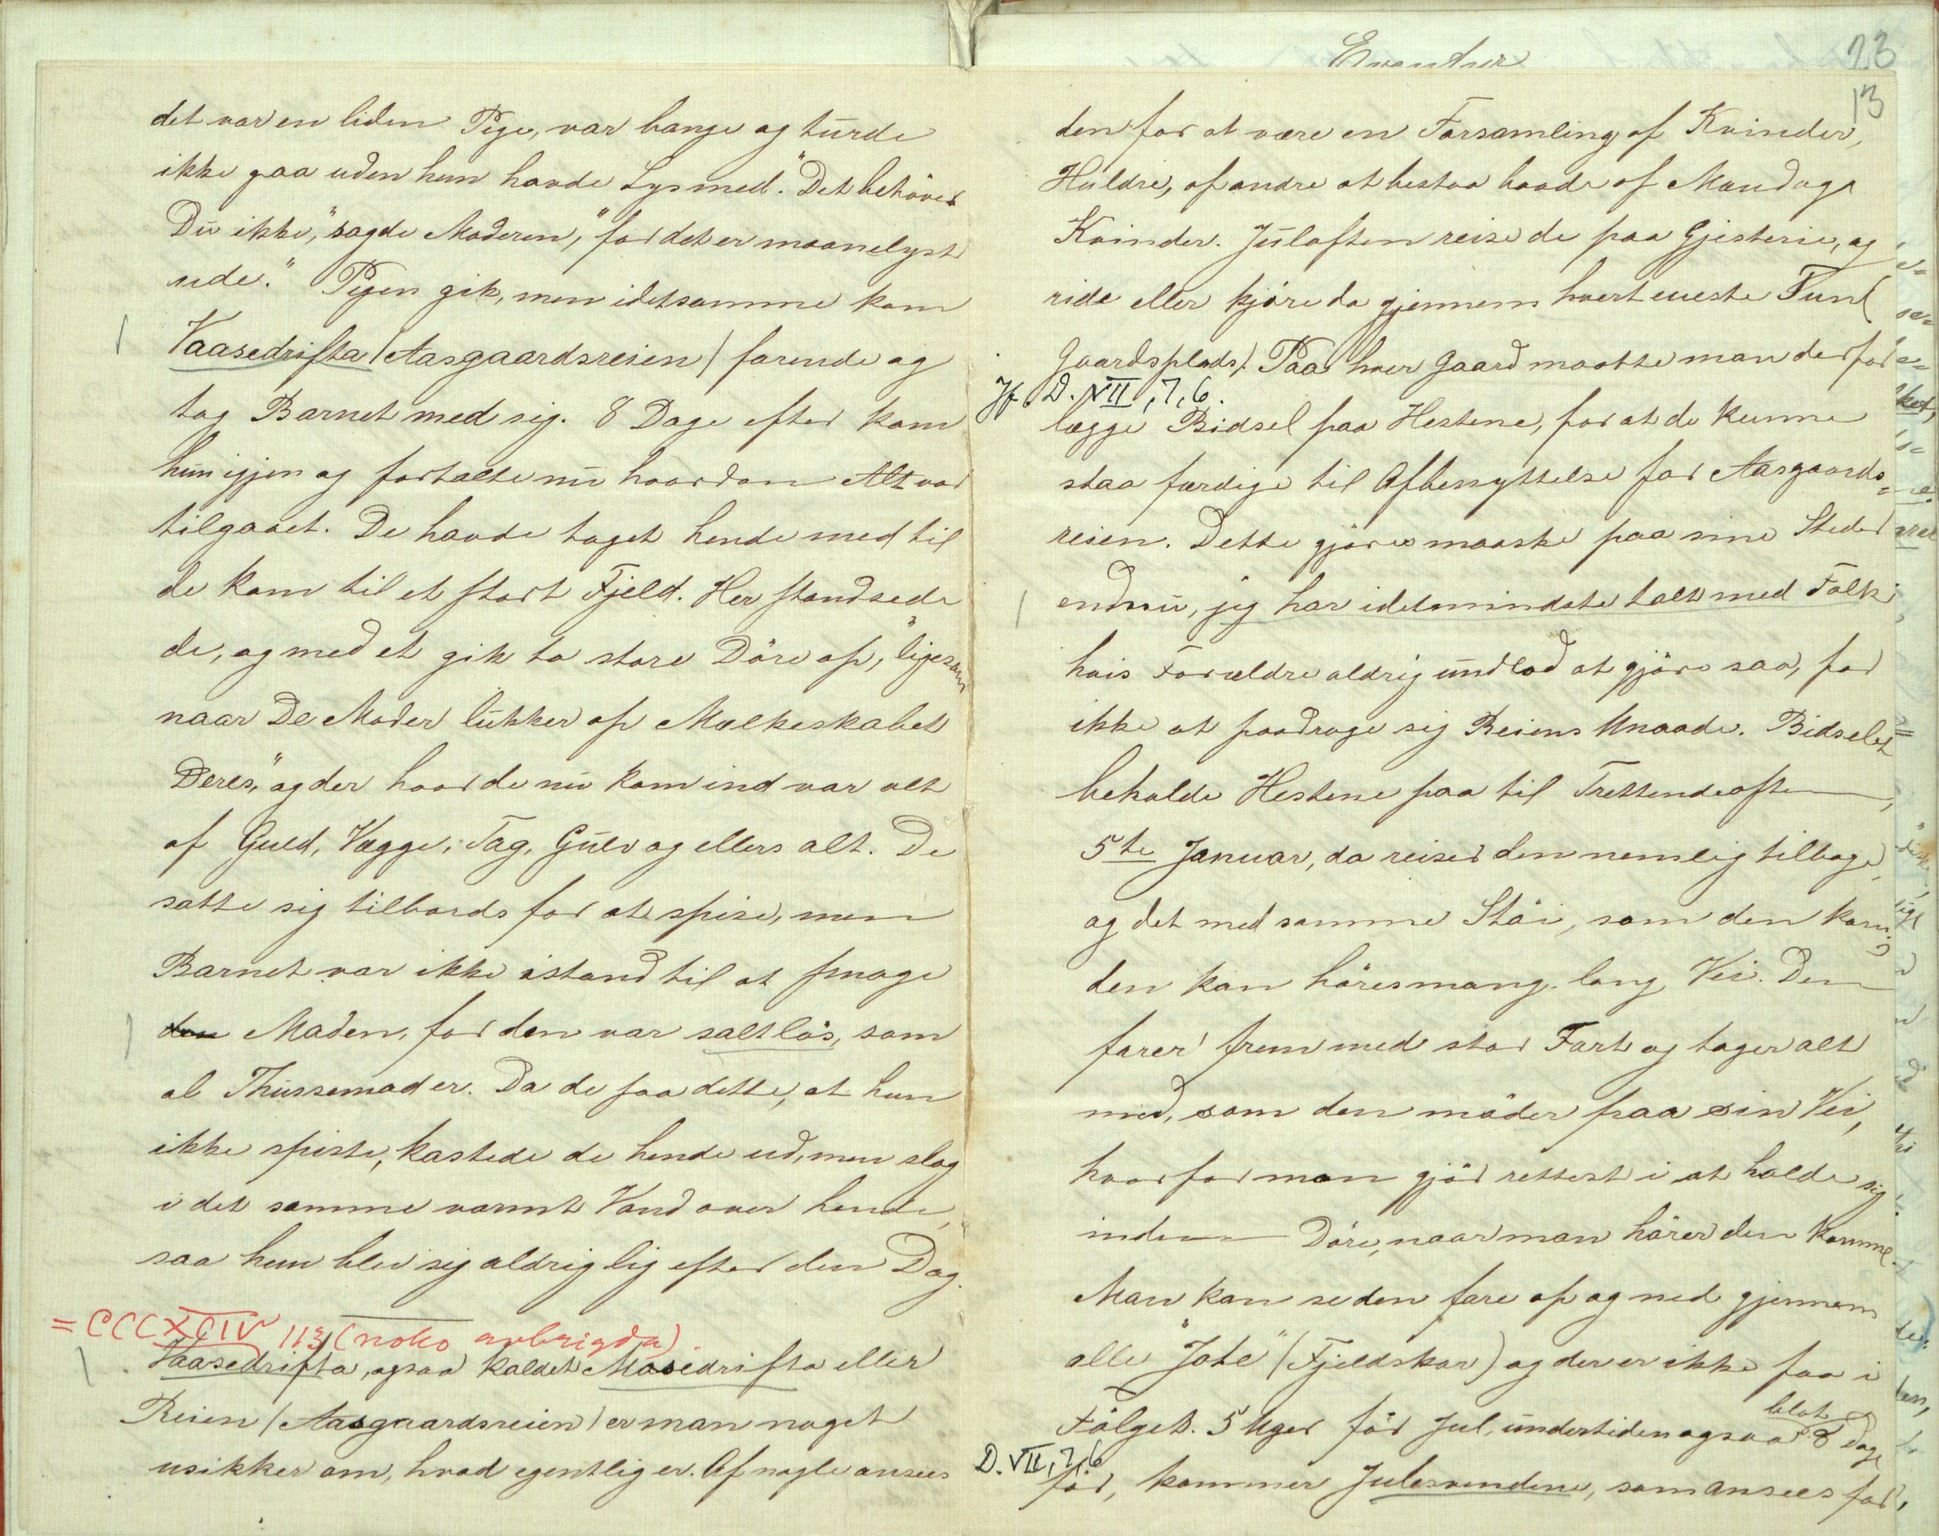 det var en liden Pige, var bange og turde
ikke gaa uden hun havde Lys med. "Det behöver
Du ikke," sagde Moderen, "for det er maanelyst
ude." Pigen gik, men idetsamme kom
Vaasedrifta (Aasgaardsreien) farende og
tog Barnet med sig. 8 Dage efter kom
hun igjen og fortalte nu hvordan Alt var
tilgaaet. De havde taget hende med til
de kom til et stort Fjeld. Her standsede
de, og med et gik to store Döre op, "ligesom
naar De Moder lukker op Mælkeskabet
Deres," og der hvor de nu kom ind var alt
af Guld, Vægge, Tag, Gulv og ellers alt. De
satte sig tilbords for at spise, men
Barnet var ikke istand til at smage
den Maden, for den var saltlös, som
al Thussemad er. Da de saa dette, at hun
ikke spiste, kastede de hende ud, men slog
i det samme varmt Vand over hende,
saa hun blev sig aldrig lig efter den Dag.
= CCCXCIV 113 (noko avbrigda).
Vaasedrifta, ogsaa kaldet Maasedrifta eller
Reien (Aasgaardsreien) er man noget
usikker om, hvad egentlig er. Af nogle ansees
Eventyr
23
13
den for at være en Forsamling af Kvinder,
Huldre, af andre at bestaa baade af Mænd og
Kvinder. Juleaften reise de paa Gjesterie, og
ride eller kjöre da gjennem hvert eneste Tun (
Gaardsplads). Paa hver Gaard maatte man derfor
Jf. D. VII, 7, 6.
lægge Bidsel paa Hestene, for at de kunne
staa færdige til Afbenyttelse for Aasgaards-
reien. Dette gjöres maaske paa sine Steder
endnu, jeg har idetmindste talt med Folk,
hvis Forældre aldrig undlod at gjöre saa, for
ikke at paadrage sig Reiens Unaade. Bidselet
beholde Hestene paa til Trettendeaften,
5te Januar, da reiser den nemlig tilbage,
og det med samme Stöi, som den kom;
den kan höres mang. lang Vei. Den
farer frem med stor Fart og tager alt
med, som den möder paa sin Vei,
hvorfor man gjör rettest i at holde sig
inden Döre, naar man hörer den komme.
Man kan se den fare op og ned gjennem
alle "Jote" (Fjeldskar) og der er ikke faa i
Fölget. 5 Uger för Jul, undertiden ogsaa blot 8 Dage
D. VII, 7, 6
för, kommer Julesvendene, som ansees for